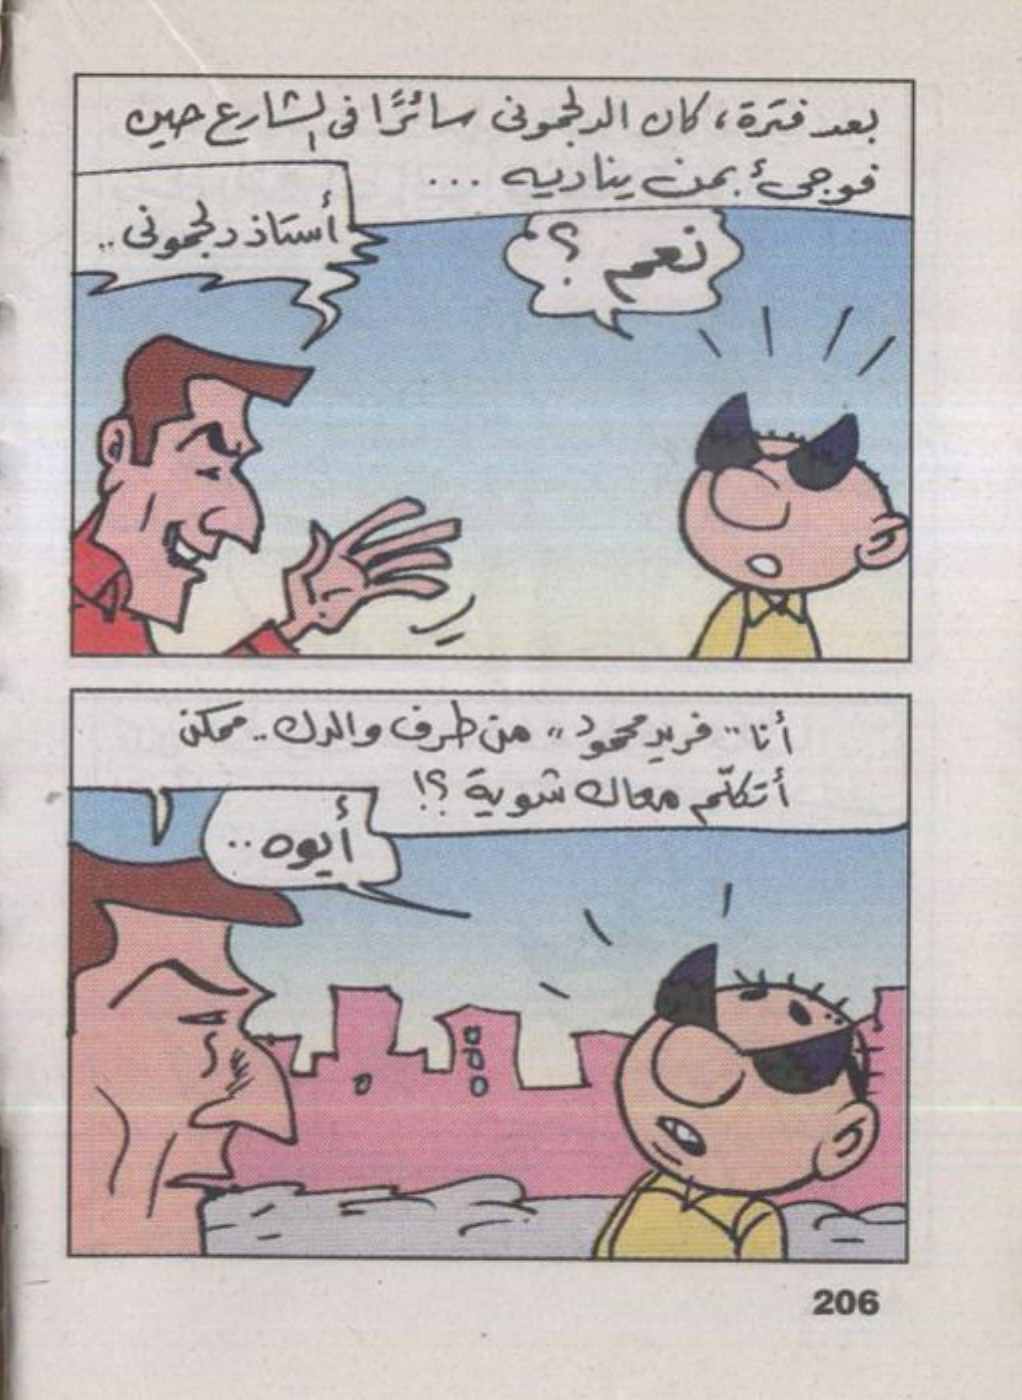 بعد فترة، كان الدلجمونى سائرًا فى الشارع حين
فوجئ بمن يناديه ...
أستاذ دلجمونى ..
نعم ؟
أنا "فريد محمود" من طرف والدك .. ممكن
أتكلّم معاك شوية ؟!
أيوه ..
206